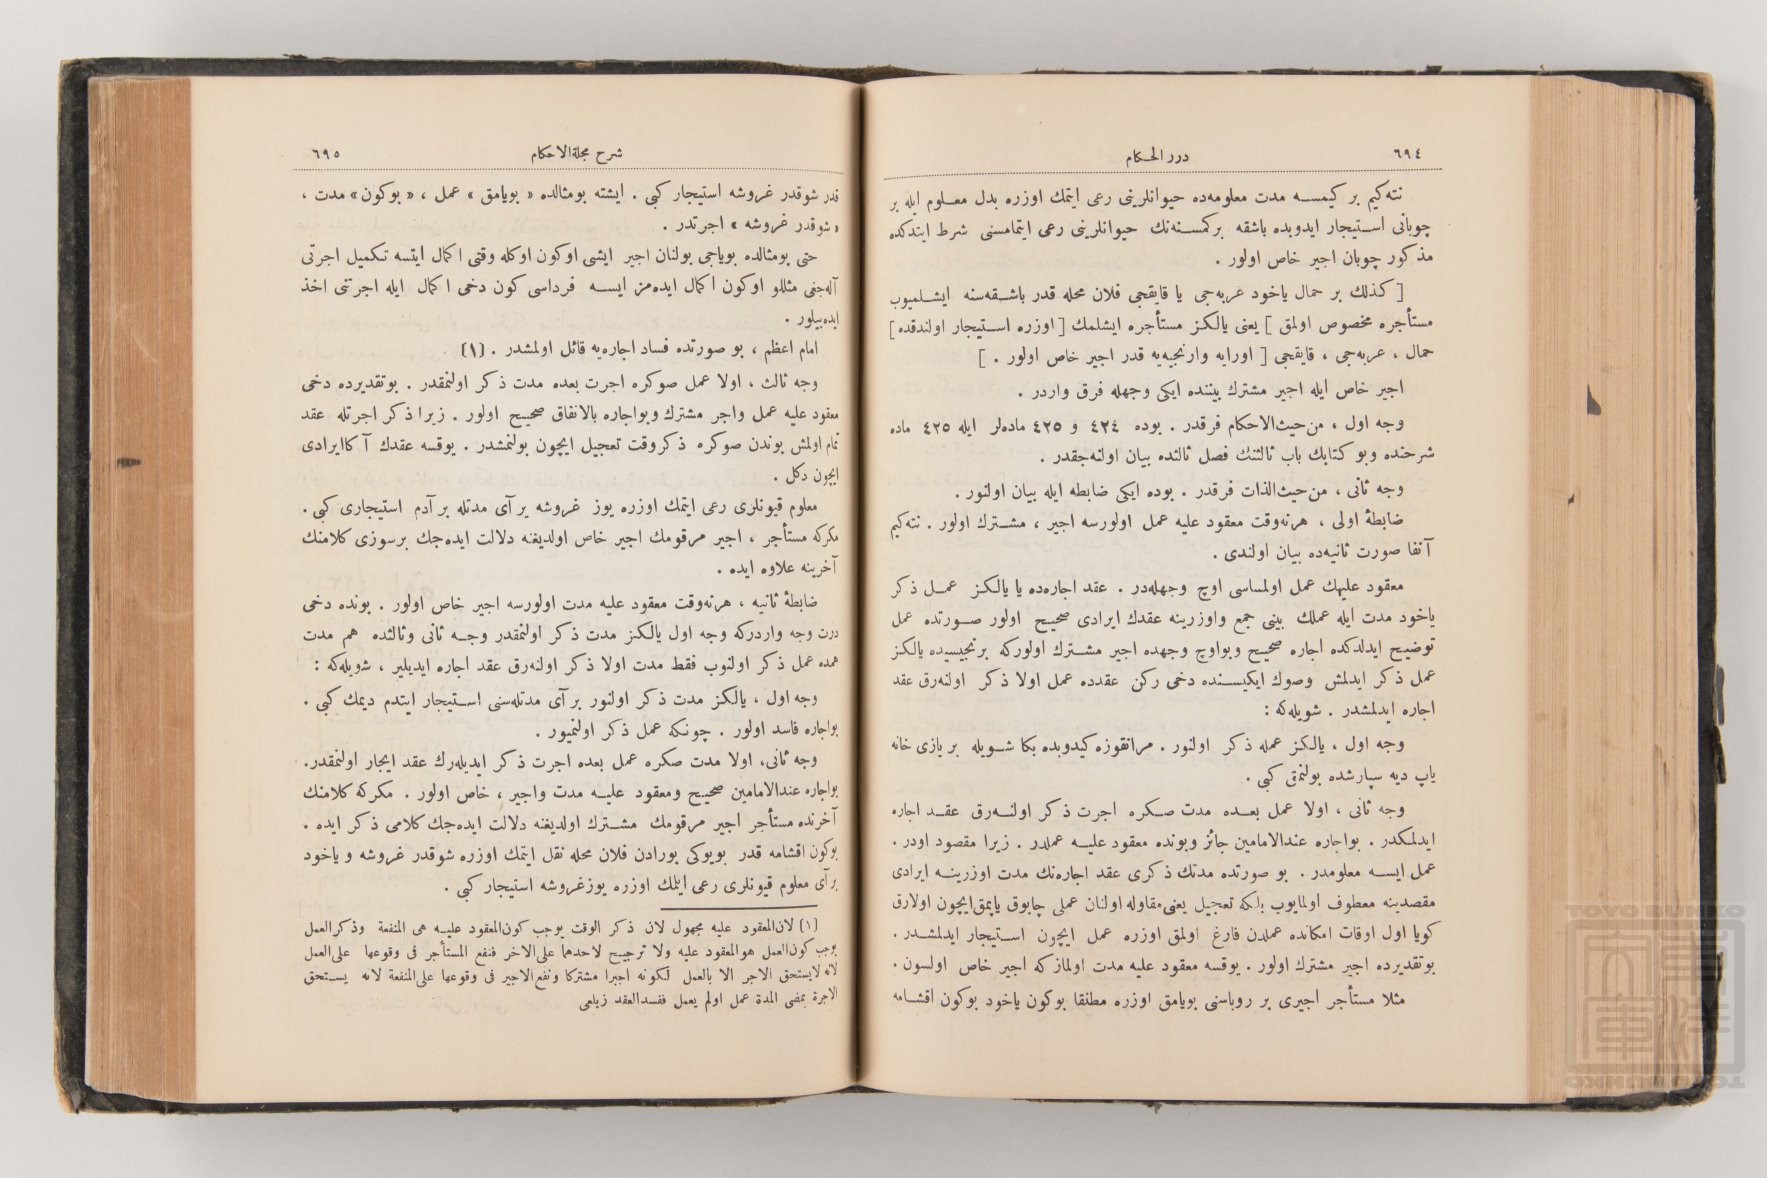 ٦٩٤
درر الحكام
نته‌كيم بر كيمسه مدت معلومه‌ده حيوانلريني رعى ايتمك اوزره بدل معلوم ايله بر
چوبانى استيجار ايدوبده باشقه بركمسه‌نه‌نك حيوانلريني رعى ايتمامسنى شرط ايتدكده
مذكور چوبان اجير خاص اولور .
[ كذلك بر حمال ياخود عربه‌جى يا قايقجى فلان محله قدر باشقه‌سنه ايشلميوب
مستأجره مخصوص اولمق ] يعنى يالكز مستأجره ايشلمك [ اوزره استيجار اولندقده ]
حمال ، عربه‌جى ، قايقجى [ اورايه وارنجيه‌يه قدر اجير خاص اولور . ]
اجير خاص ايله اجير مشترك بيننده ايكى وجهله فرق واردر .
وجه اول ، من‌حيث‌الاحكام فرقدر . بوده ٤٢٤ و ٤٢٥ ماده‌لر ايله ٤٢٥ ماده
شرخنده وبو كتابك باب ثالثنك فصل ثالثده بيان اولنه‌جقدر .
وجه ثانى ، من‌حيث‌الذات فرقدر . بوده ايكى ضابطه ايله بيان اولنور .
ضابطهٔ اولى ، هرنه‌وقت معقود عليه عمل اولورسه اجير ، مشترك اولور . نته‌كيم
آنفا صورت ثانيه‌ده بيان اولندى .
معقود عليهك عمل اولمساسى اوچ وجهله‌در . عقد اجاره‌ده يا يالكز عمل ذكر
ياخود مدت ايله عملك بينى جمع واوزرينه عقدك ايرادى صحيح اولور صورتده عمل
توضيح ايدلدكده اجاره صحيح وبواوچ وجهده اجير مشترك اولوركه برنجيسيده يالكز
عمل ذكر ايدلمش وصوك ايكيسنده دخى ركن عقدده عمل اولا ذكر اولنه‌رق عقد
اجاره ايدلمشدر . شويله‌كه :
وجه اول ، يالكز عمله ذكر اولنور . مرانقوزه كيدوبده بكا شويله بر يازى خانه
ياپ ديه سپارشده بولنمق كبى .
وجه ثانى ، اولا عمل بعده مدت صكره اجرت ذكر اولنه‌رق عقد اجاره
ايدلمكدر . بواجاره عندالامامين جائز وبونده معقود عليه عملدر . زيرا مقصود اودر .
عمل ايسه معلومدر . بو صورتده مدتك ذكرى عقد اجاره‌نك مدت اوزرينه ايرادى
مقصدينه معطوف اولمايوب بلكه تعجيل يعنى‌مقاوله اولنان عملى چابوق ياپمق‌ايچون اولارق
كويا اول اوقات امكانده عملدن فارغ اولمق اوزره عمل ايچون استيجار ايدلمشدر .
بوتقديرده اجير مشترك اولور . يوقسه معقود عليه مدت اولمازكه اجير خاص اولسون .
مثلا مستأجر اجيرى بر روباسنى بويامق اوزره مطلقا بوكون ياخود بوكون اقشامه
شرح مجلة‌الاحكام
٦٩٥
قدر شوقدر غروشه استيجار كبى . ايشته بومثالده « بويامق » عمل ، « بوكون » مدت ،
« شوقدر غروشه » اجرتدر .
حتى بومثالده بوياجى بولنان اجير ايشى اوكون اوكله وقتى اكمال ايتسه تكميل اجرتى
آله‌جغى مثللو اوكون اكمال ايده‌مز ايسه فرداسى كون دخى اكمال ايله اجرتنى اخذ
ايده‌بيلور .
امام اعظم ، بو صورتده فساد اجاره‌يه قائل اولمشدر . (١)
وجه ثالث ، اولا عمل صوكره اجرت بعده مدت ذكر اولنمقدر . بوتقديرده دخى
معقود عليه عمل واجر مشترك وبواجاره بالانفاق صحيح اولور . زيرا ذكر اجرتله عقد
تمام اولمش بوندن صوكره ذكروقت تعجيل ايچون بولنمشدر . يوقسه عقدك آكاايرادى
ايچون دكل .
معلوم قيونلرى رعى ايتمك اوزره يوز غروشه برآى مدتله برآدم استيجارى كبى .
مكركه مستأجر ، اجير مرقومك اجير خاص اولديغنه دلالت ايده‌جك برسوزى كلامنك
آخرينه علاوه ايده .
ضابطهٔ ثانيه ، هرنه‌وقت معقود عليه مدت اولورسه اجير خاص اولور . بونده دخى
درت وجه واردركه وجه اول يالكز مدت ذكر اولنمقدر وجه ثانى وثالثده هم مدت
همده عمل ذكر اولنوب فقط مدت اولا ذكر اولنه‌رق عقد اجاره ايديلير ، شويله‌كه :
وجه اول ، يالكز مدت ذكر اولنور برآى مدتله‌سنى استيجار ايتدم ديمك كبى .
بواجاره فاسد اولور . چونكه عمل ذكر اولنميور .
وجه ثانى، اولا مدت صكره عمل بعده اجرت ذكر ايديله‌رك عقد ايجار اولنمقدر.
بواجاره عندالامامين صحيح ومعقود عليه مدت واجير ، خاص اولور . مكركه كلامنك
آخرنده مستأجر اجير مرقومك مشترك اولديغنه دلالت ايده‌جك كلامى ذكر ايده .
بوكون اقشامه قدر بويوكى بورادن فلان محله نقل ايتمك اوزره شوقدر غروشه و ياخود
برآى معلوم قيونلرى رعى ايتمك اوزره يوزغروشه استيجار كبى .
(١) لان‌المعقود عليه مجهول لان ذكر الوقت يوجب كون‌المعقود عليه هى المنفعة وذكرالعمل
يوجب كون‌العمل هوالمعقود عليه ولا ترجيح لاحدهما على‌الاخر فنفع المستأجر فى وقوعها على‌العمل
لانه لايستحق الاجر الا بالعمل لكونه اجيرا مشتركا ونفع‌الاجير فى وقوعها على‌المنفعة لانه يستحق
الاجرة بمضى المدة عمل اولم يعمل ففسدالعقد زيلعى
TOYO BUNKO